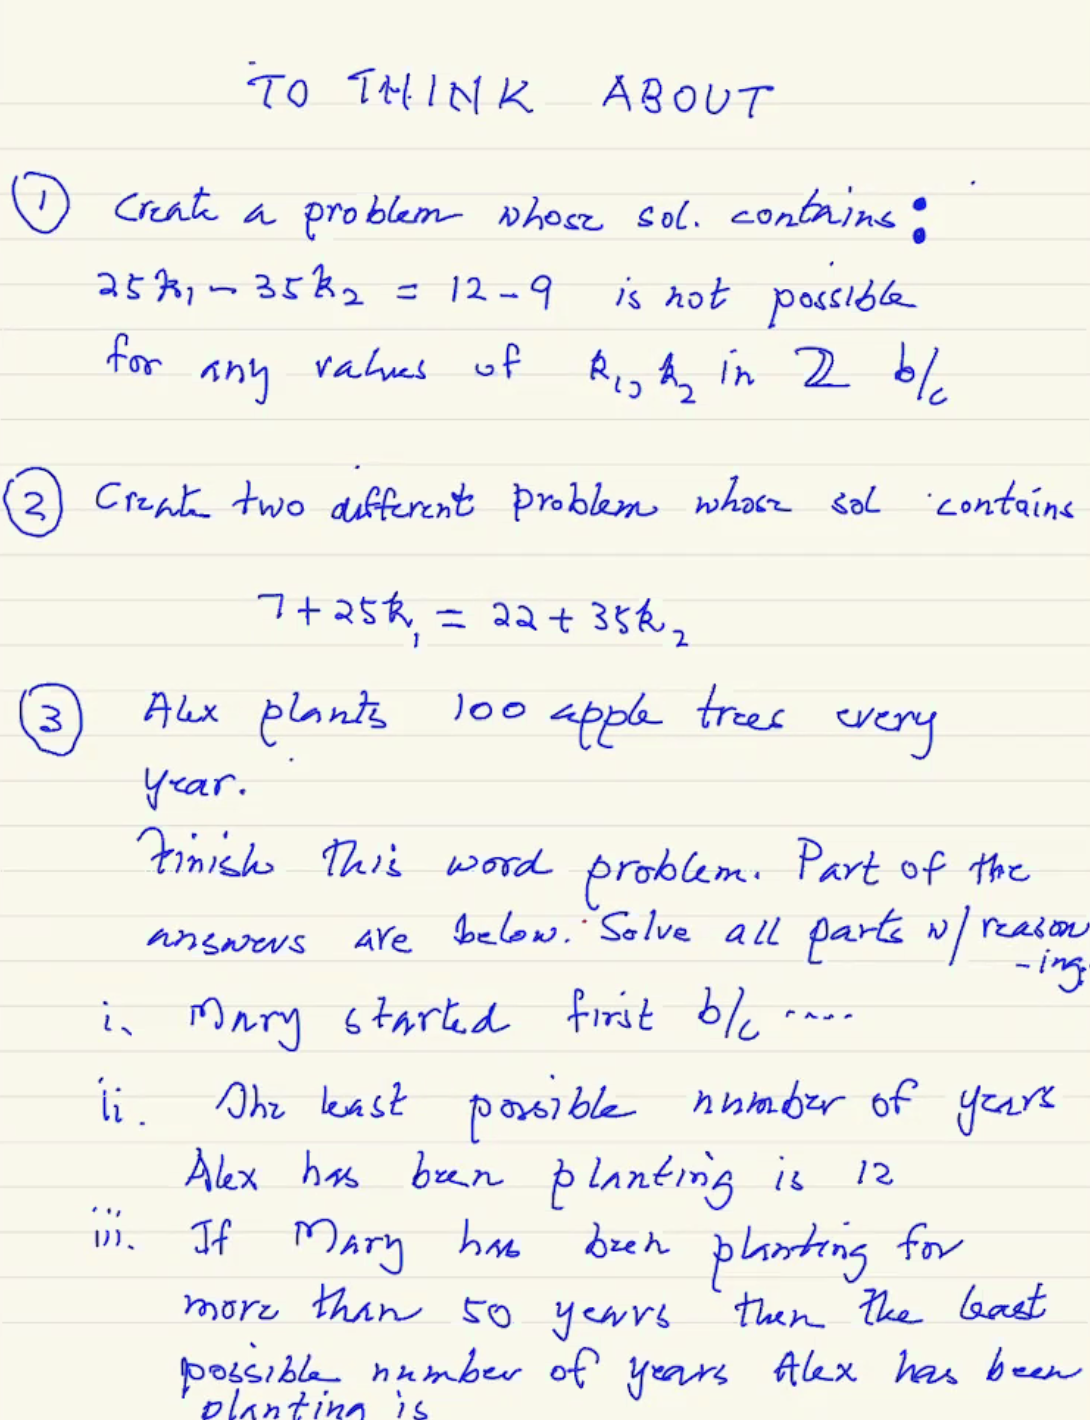 TO THINK ABOUT
① Create a problem whose sol. contains:
25k₁ - 35k₂ = 12 - 9 is not possible
for any values of k₁, k₂ in ℤ b/c
② Create two different problem whose sol contains
7 + 25k₁ = 22 + 35k₂
③ Alex plants 100 apple trees every
year.
Finish this word problem. Part of the
answers are below. Solve all parts w/ reason
-ing.
i. Mary started first b/c ....
ii. The least possible number of years
Alex has been planting is 12
iii. If Mary has been planting for
more than 50 years then the least
possible number of years Alex has been
planting is